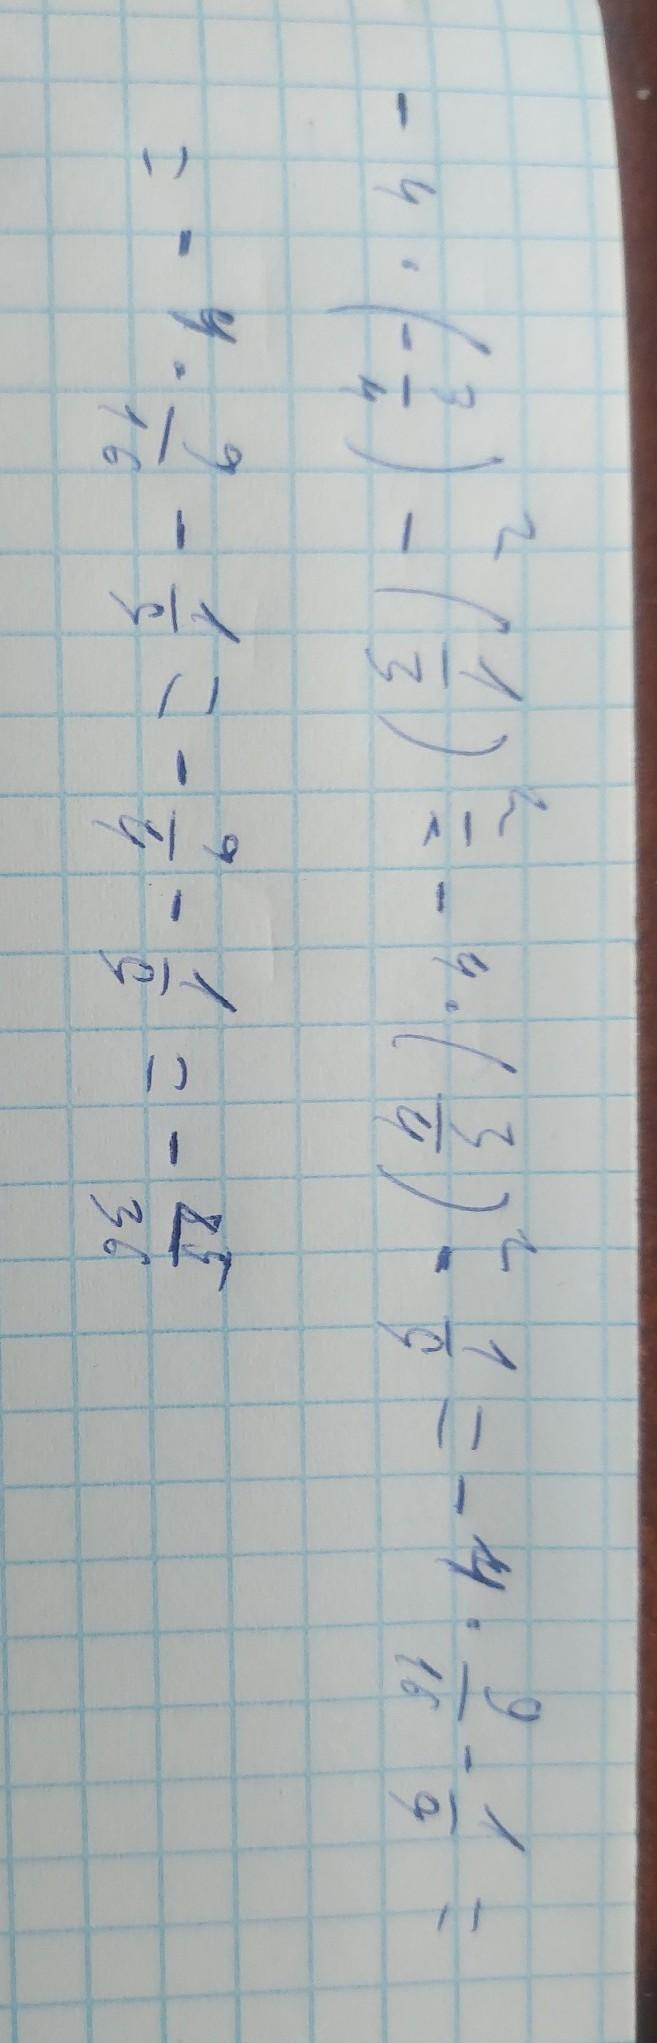 - 4 · (- 3/4)² - (1/3)² = - 4 · (3/4)² - 1/9 = - 4 · 9/16 - 1/9 =
= - 4 · 9/16 - 1/9 = - 9/4 - 1/9 = - 85/36